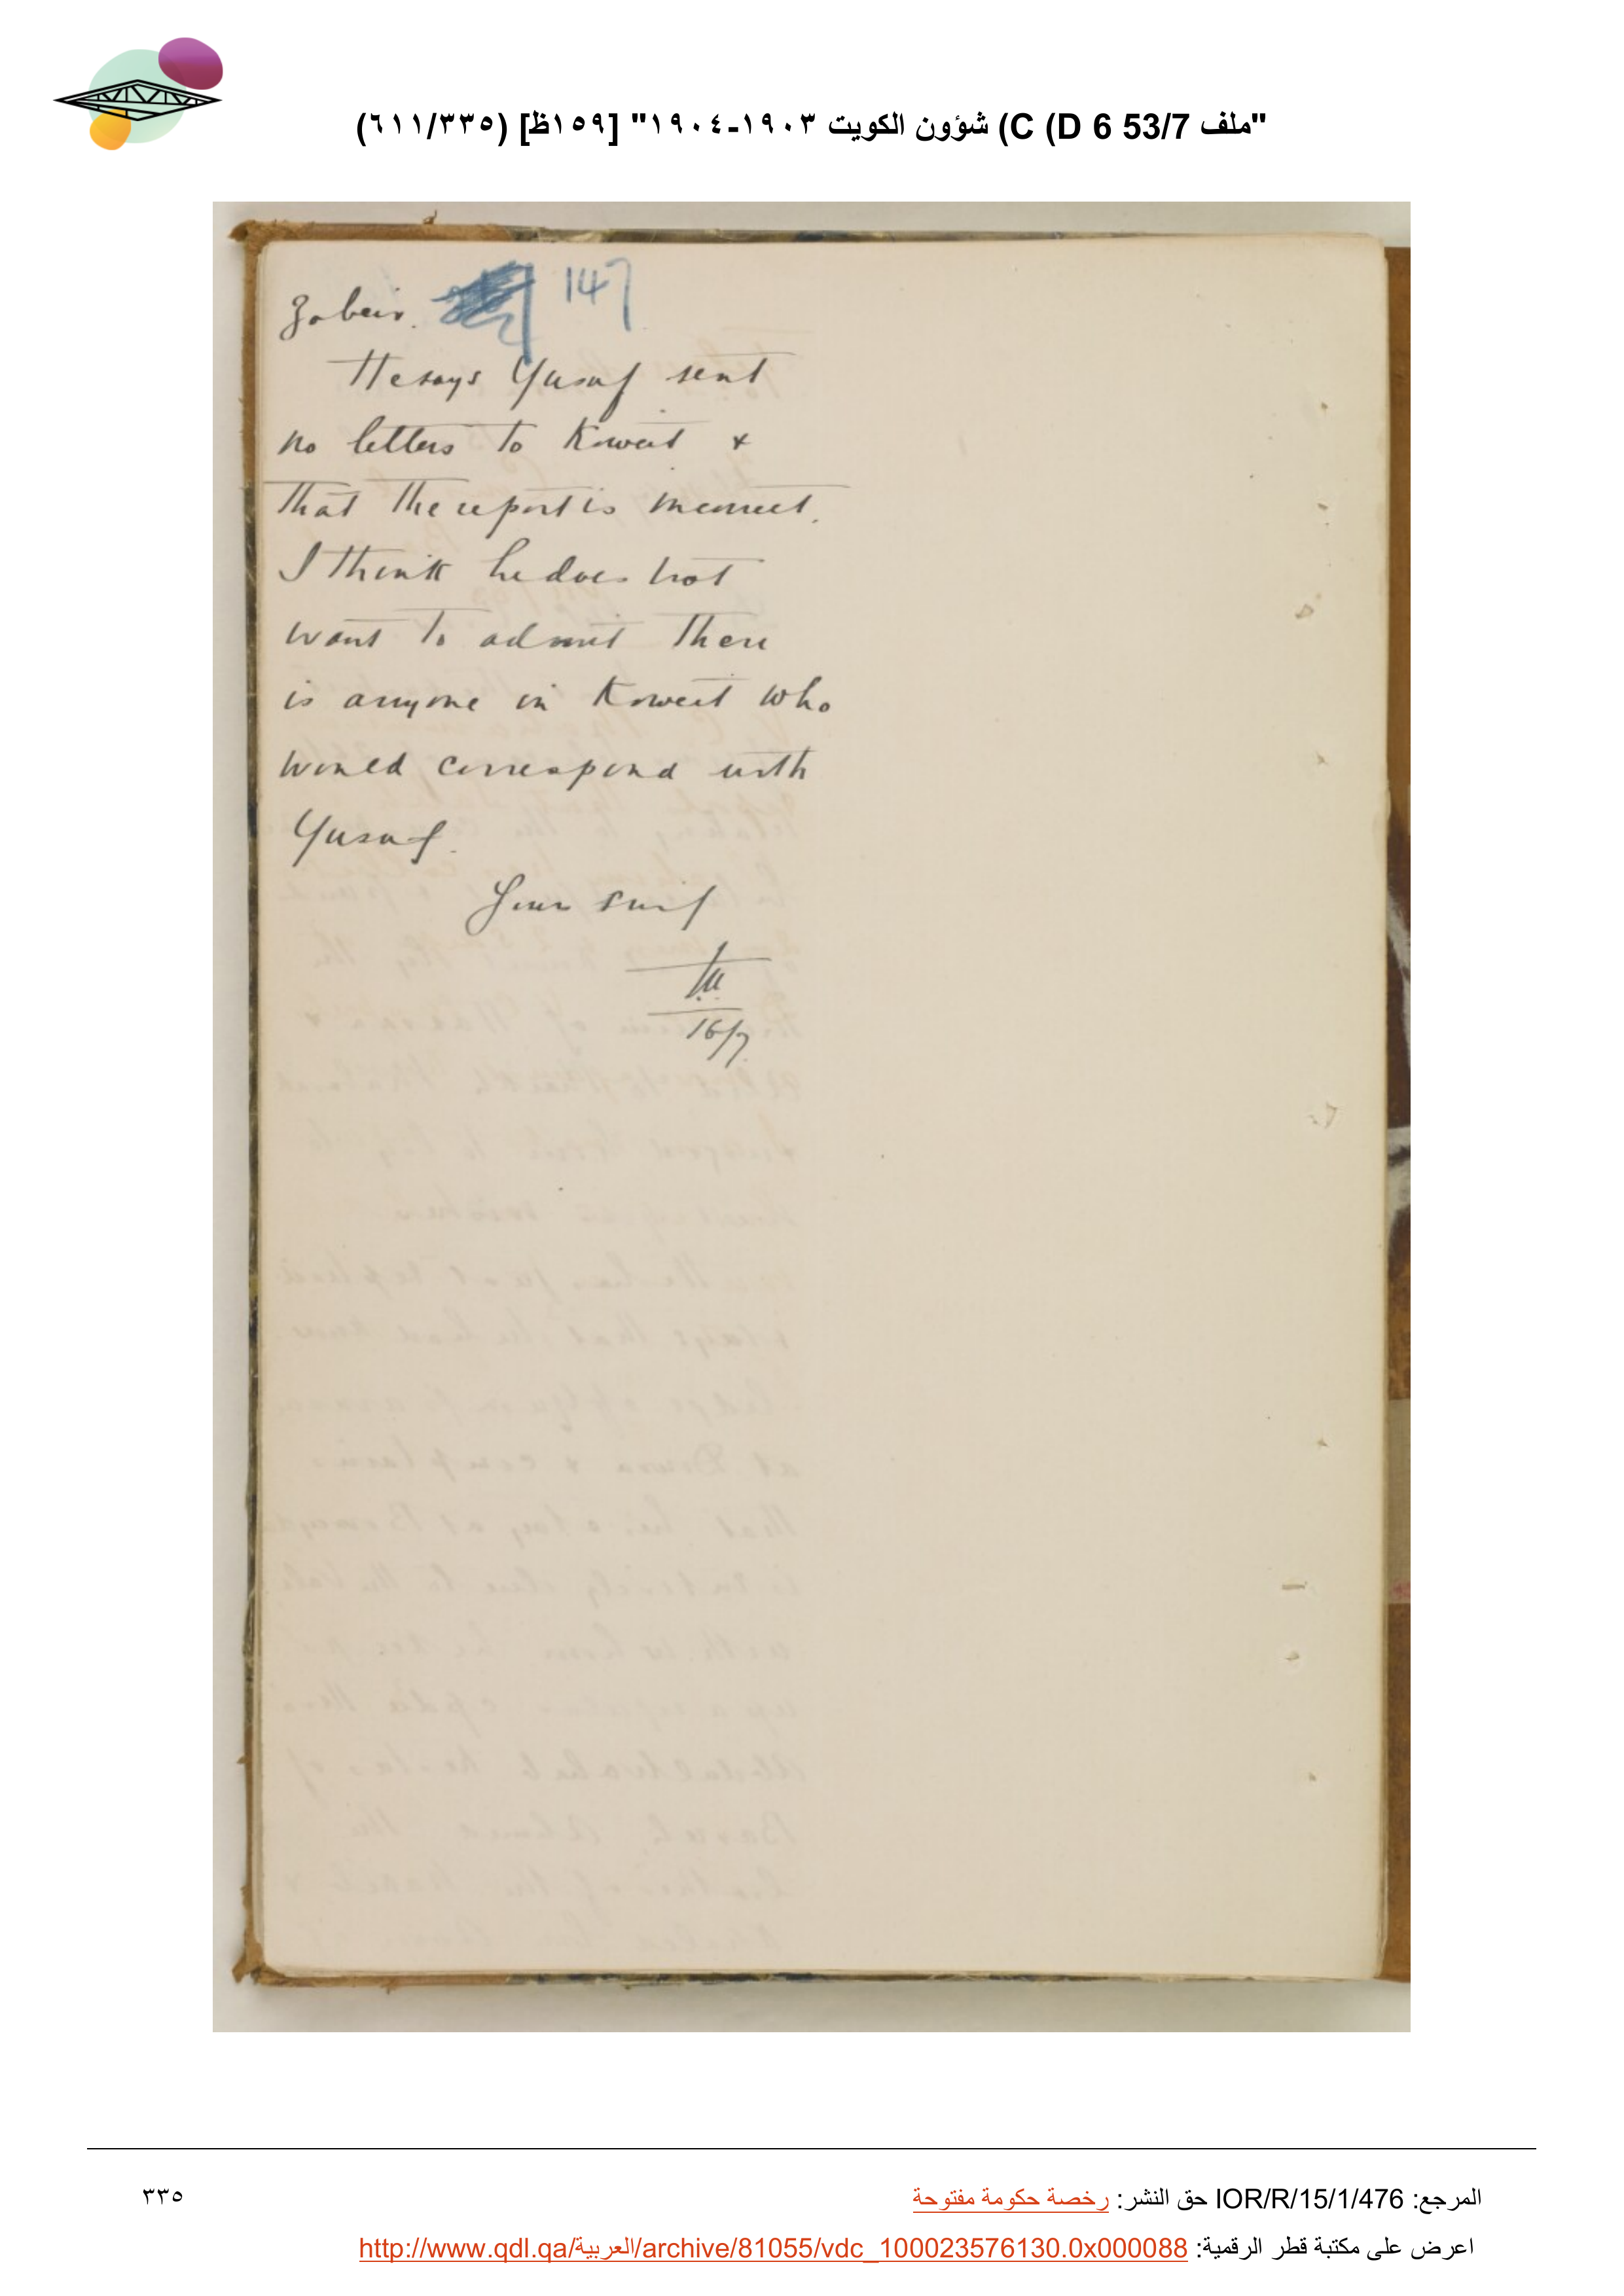 "ملف 53/7 D 6) C) شؤون الكويت ١٩٠٣-١٩٠٤" [١٥٩ظ] (٦١١/٣٣٥)
147
Zobeir.
He says Yusuf sent
no letters to Koweit &
that the report is incorrect.
I think he does not
want to admit there
is anyone in Koweit who
would correspond with
Yusuf.
Yours
16/7
المرجع: IOR/R/15/1/476 حق النشر: رخصة حكومة مفتوحة
٣٣٥
اعرض على مكتبة قطر الرقمية: http://www.qdl.qa/العربية/archive/81055/vdc_100023576130.0x000088